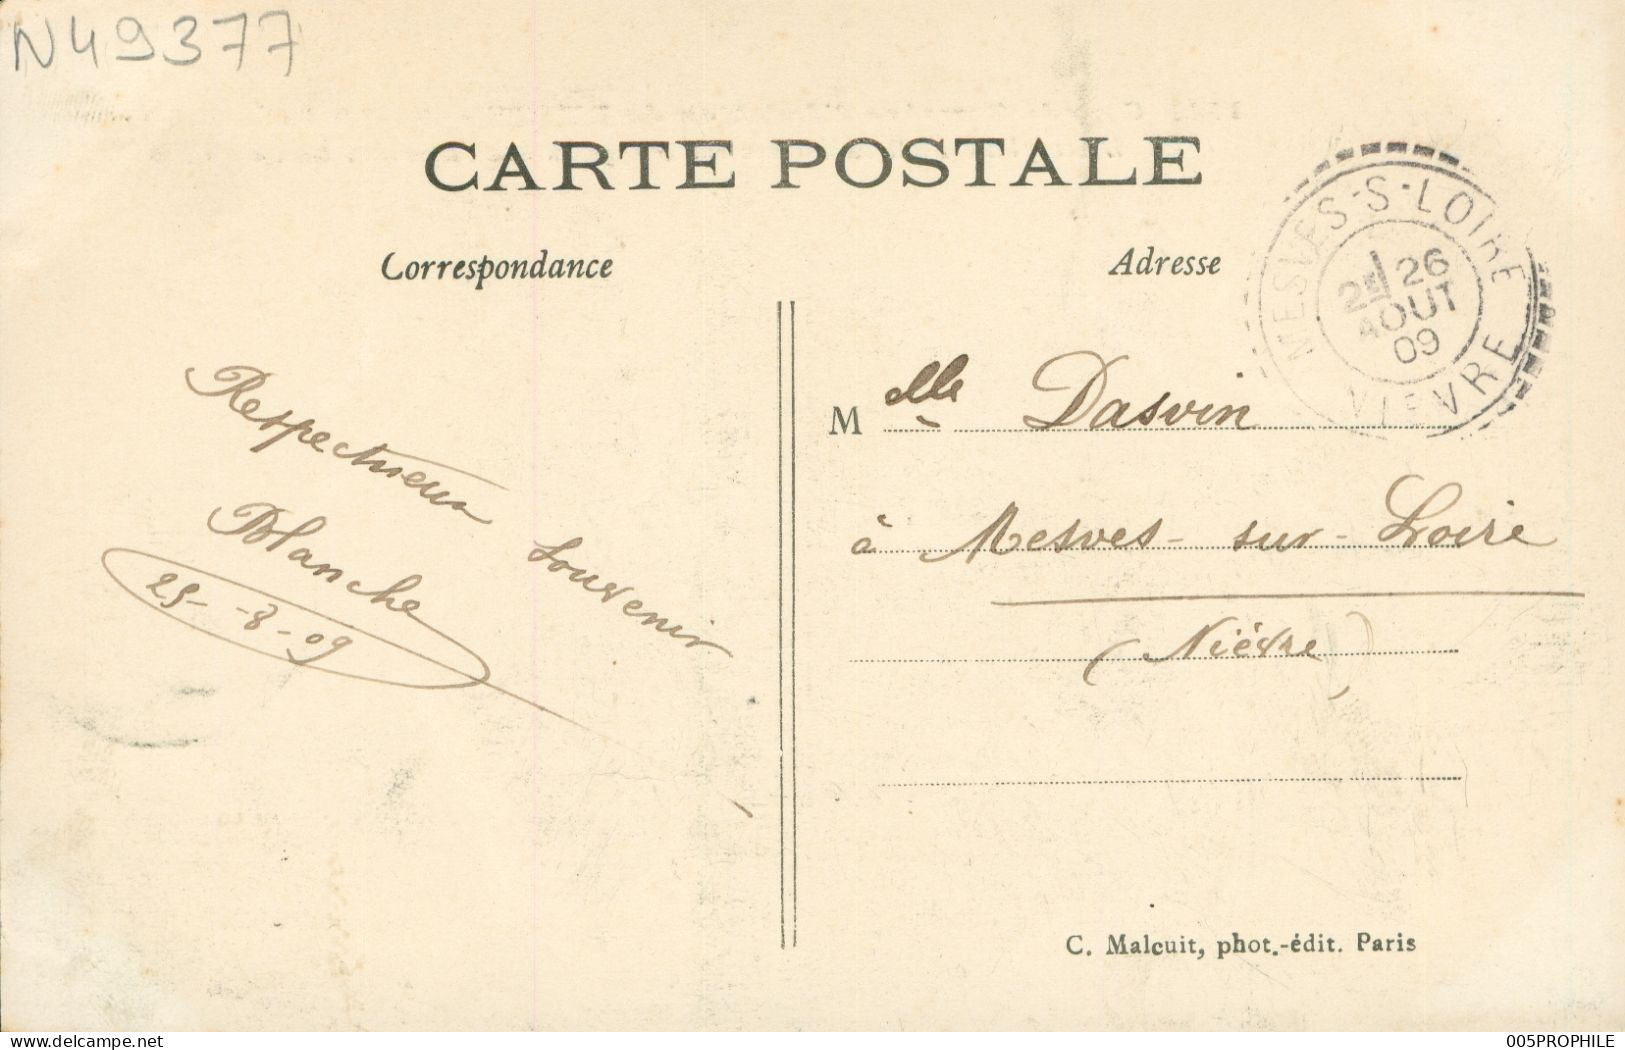 N49377
CARTE POSTALE
Correspondance
Adresse
MESVES-S-LOIRE
26
AOUT
09
NIEVRE
Respectueux Souvenir
Blanche
25-8-09
Mlle Dasvin
à Mesves-sur-Loire
(Nièvre)
C. Malcuit, phot.-édit. Paris
delcampe.net
005PROPHILE